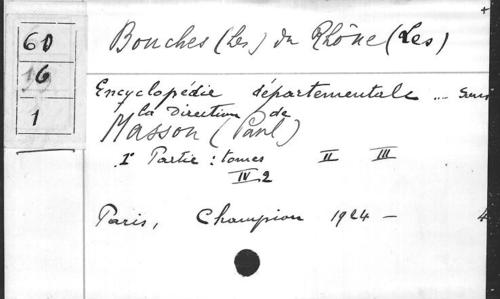 60
16
1
+
Bouches (Les) du Rhône (Les)
Encyclopédie départementale .. sous
la Direction de
Masson (Paul)
1e Partie : tomes II III
IV 2
Paris, Champion 1924 – 4